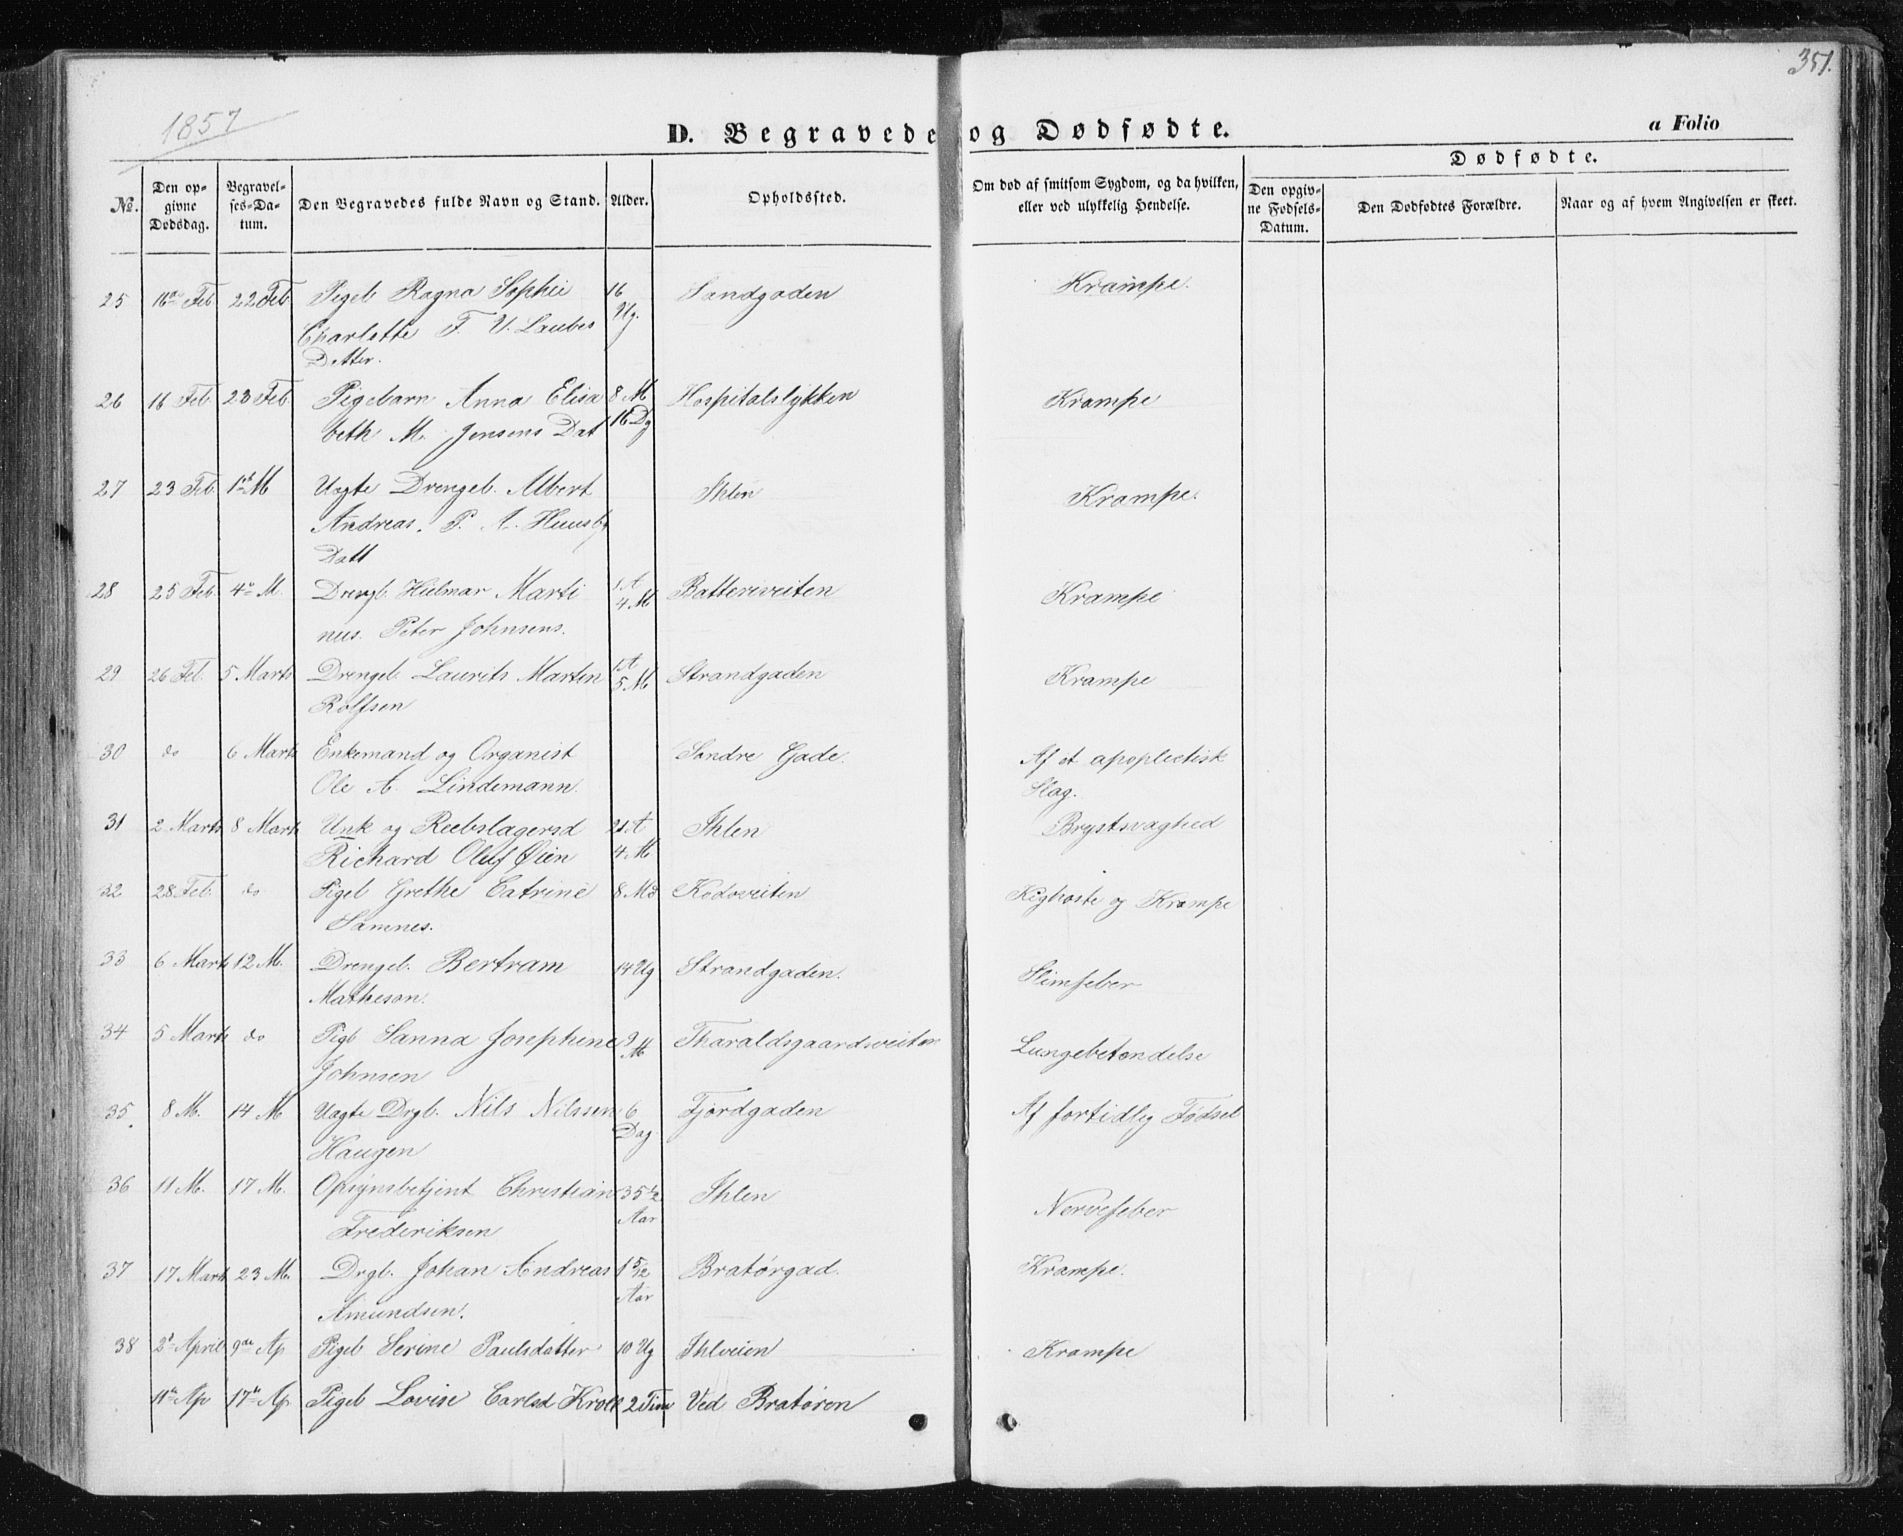 351.
1857
D. Begravede og Dødfødte.
a Folio
No.
Den op-
givne
Dødsdag.
Begravel-
ses-Da-
tum.
Den Begravedes fulde Navn og Stand.
Alder.
Opholdssted.
Om død af smitsom Sygdom, og da hvilken,
eller ved ulykkelig Hendelse.
Dødfødte.
Den opgiv-
ne Fødsels-
Datum.
Den Dødfødtes Forældre.
Naar og af hvem Angivelsen er skeet.
25 16de Feb 22 Feb Pigeb Ragna Sophie 16 Sandgaden Krampe.
Charlotte F. V. Laubes Ug.
Datter.
26 16 Feb 23 Feb Pigebarn Anna Elisa 8 M Hospitalslykken Krampe
beth M. Jensens Dat 16 Dg
27 23 Feb 1st M Uægte Drengeb. Albert Ihlen Krampe.
Andreas. P. A. Huusby
Datt
28 25 Feb 4de M. Drengb. Hielmar Marti 1 A Batteriveiten Krampe
nus. Peter Johnsens. 4 M
29 26 Feb. 5 Marts Drengeb. Laurits Marten 1 A Strandgaden Krampe
Rolfsen 5 M
30 do 6 Marts Enkemand og Organist Søndre Gade. Af et apoplectisk
Ole A. Lindemann. Slag.
31 2 Marts 8 Marts Unk og Reebslagersd 21 A Ihlen Brystsvaghed
Richard Oluf Øien 4 M
32 28 Feb. do Pigeb Grethe Catrine 8 Md Kodsveiten Kighoste og Krampe
Samnes.
33 6 Marts 12 M. Drengeb. Bertram 14 Ug Strandgaden. Slimfeber
Matheson.
34 5 Marts do Pigb Sanna Josephine 9 Tharaldsgaardsveiten Lungebetendelse
Johnsen M
35. 8 M. 14 M Uægte Drgb. Nils Nilssen 6 Fjordgaden Af fortidlig Fødsel
Haugen Dag
36 11 M. 17 M. Opsynsbetjent Christian 35 1/2 Ihlen Nervefeber
Frederiksen Aar
37 17 Marts 23 M. Drgb. Johan Andreas 1 5/12 Bratørgad. Krampe.
Amundsen. Aar
38 2d April 9de Ap Pigeb Serine Paulsdatter 10 Ug Ihlveien Krampe
11te Ap 17de Ap. Pigeb Lovise Carlsd Krok 2 Tim Ved Bratøren